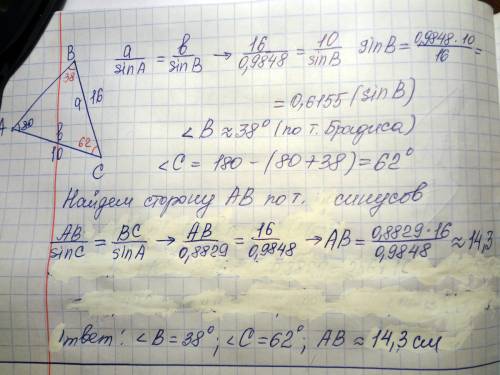 B
38
a 16
A 80
b
10
62
C
a/sinA = b/sinB → 16/0,9848 = 10/sinB sinB = 0,9848·10/16 =
= 0,6155 (sinB)
∠B ≈ 38° (по т. Брадиса)
∠C = 180 − (80+38) = 62°
Найдем сторону AB по т. синусов
AB/sinC = BC/sinA → AB/0,8829 = 16/0,9848 → AB = 0,8829·16/0,9848 ≈ 14,3
Ответ: ∠B = 38°; ∠C = 62°; AB ≈ 14,3 см